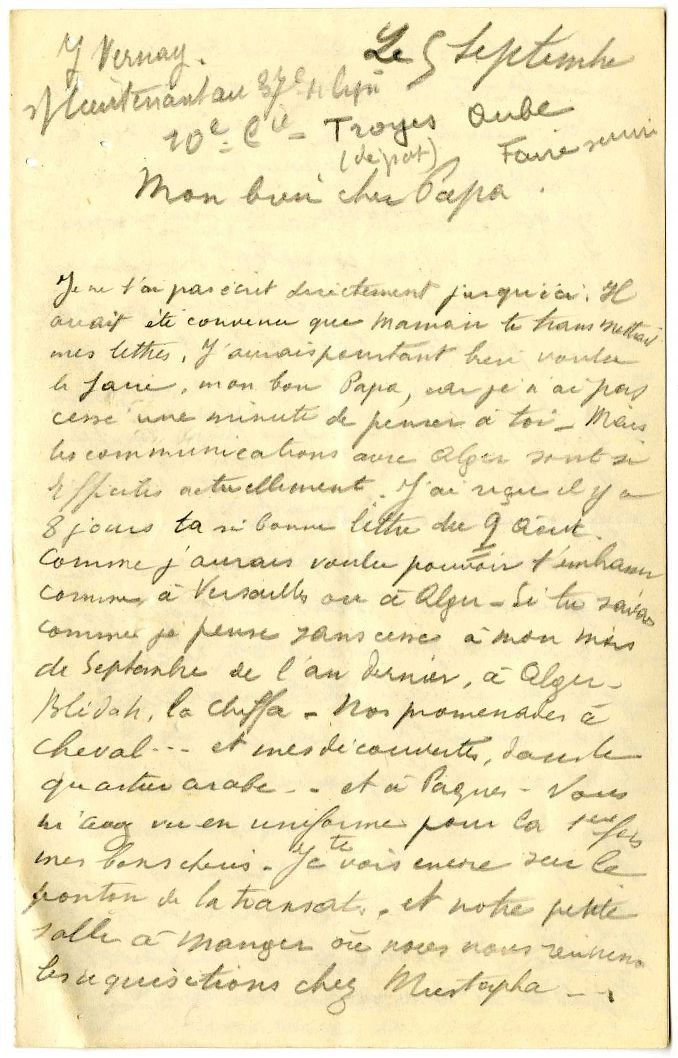 J Vernay.
Le 5 Septembre
s/Lieutenant au 37e de ligne
10e Cie - Troyes Aube
(dépot) Faire suivre
Mon bien cher Papa.
Je ne t'ai pas écrit directement jusqu'ici. Il
avait été convenu que Maman te transmettrait
mes lettres. J'aurais pourtant bien voulu
le faire, mon bon Papa, car je n'ai pas
cessé une minute de penser à toi - Mais
les communications avec Alger sont si
difficiles actuellement. J'ai reçu il y a
8 jours ta si bonne lettre du 9 Août.
Comme j'aurais voulu pouvoir t'embrasser
comme à Versailles ou à Alger - Si tu savais
comme je pense sans cesse à mon mois
de Septembre de l'an dernier, à Alger -
Blidah, la Chiffa - Nos promenades à
cheval --- et mes découvertes, dans le
quartier arabe - - et à Pâques - Vous
m'avez vu en uniforme pour la 1ere fois
mes bons chéris - Je te vois encore sur le
ponton de la transat. , et notre petite
salle à manger où nous nous
les acquisitions chez Mustapha - - .